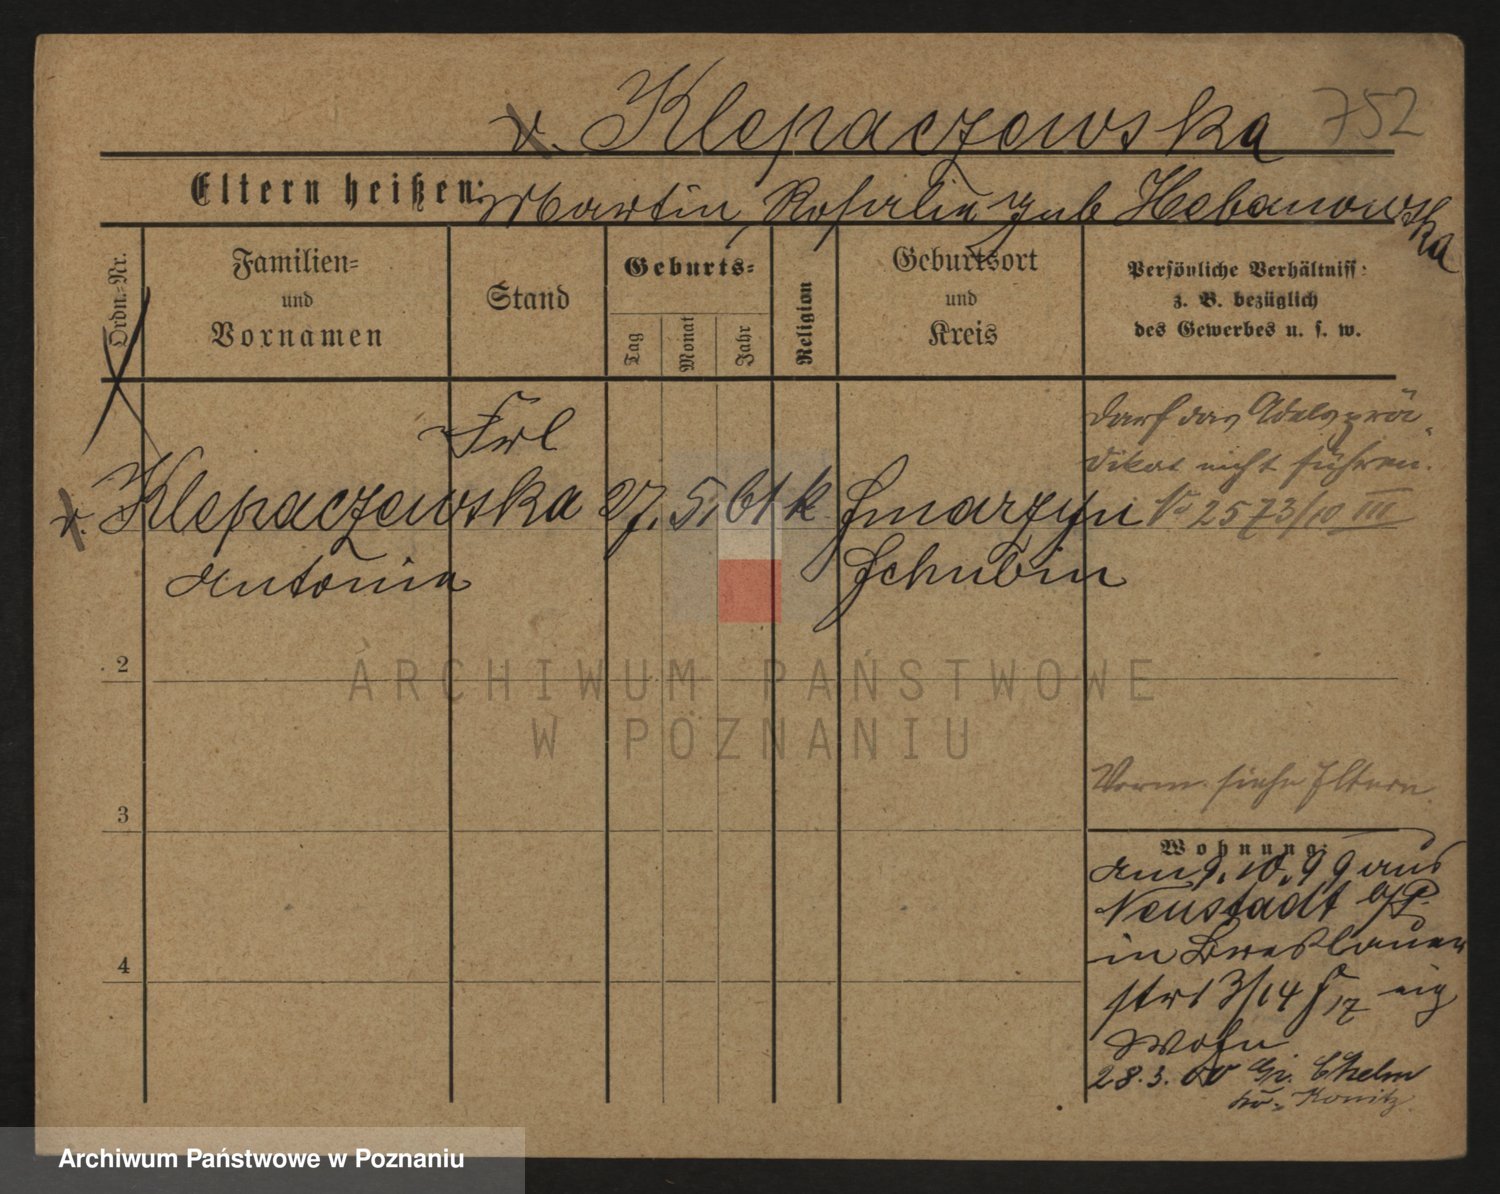 v. Klepaczewska 752
Eltern heißen: Martin, Rosalie geb Hebanowska
Ordn.-Nr.
Familien-
und
Vornamen
Stand
Geburts-
Tag
Monat
Jahr
Religion
Geburtsort
und
Kreis
Persönliche Verhältniss:
z. B. bezüglich
des Gewerbes u. s. w.
Frl
v. Klepaczewska 27. 5. 61 k Smarzyn
Antonia Schubin
darf das Adelsprä-
dikat nicht führen.
2573/10 III
2
3
4
Vorm. siehe Eltern.
Wohnung:
am 9. 10. 99 aus
Neustadt
in Breslauer
str 13/14 eig
Wohn
28. 3. 00 Gr. Chelm
Kr. Konitz
ARCHIWUM PAŃSTWOWE
W POZNANIU
Archiwum Państwowe w Poznaniu